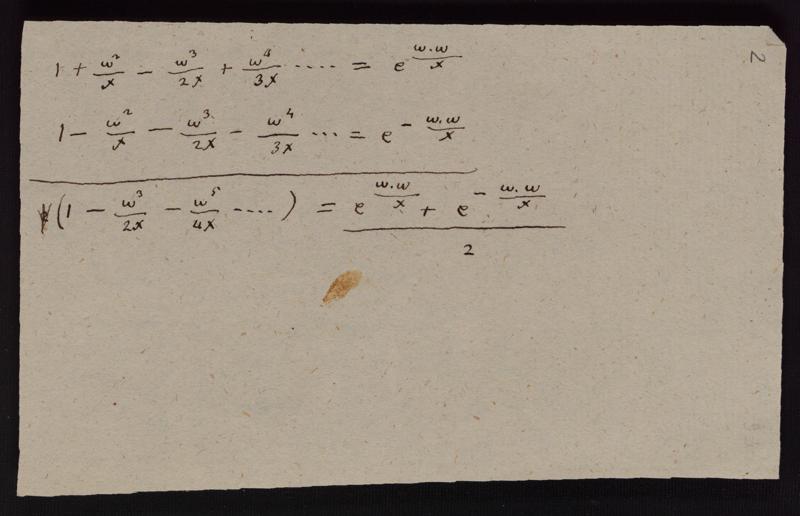 2
1 + ω²/x − ω³/2x + ω⁴/3x ···· = e^(ω.ω/x)
1 − ω²/x − ω³/2x − ω⁴/3x ··· = e^(− ω.ω/x)
(1 − ω³/2x − ω⁵/4x ····) = (e^(ω.ω/x) + e^(− ω.ω/x))/2